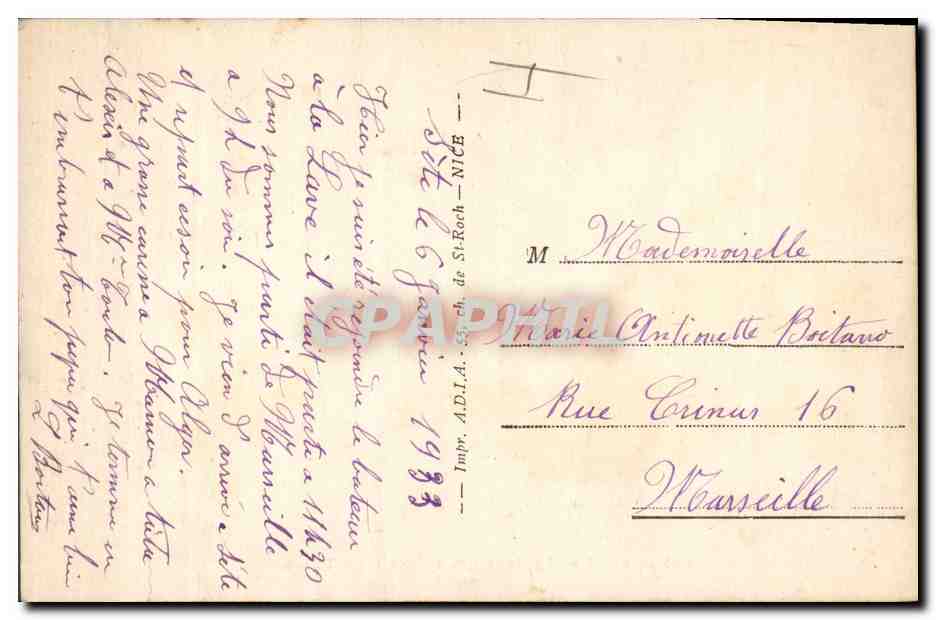 Sète le 6 Janvier 1933
Hier je suis été rejoindre le bateau
à la Lave il était parti a 11h30
Nous sommes parti de Marseille
a 9h du soir. Je vien d'arrivé a Sète
et repart ce soir pour Alger.
Une grosse caresse a Maman a tata
a Me Je termine en
t'embrassant ton papa qui t'aime bien
Boitano
— Impr. A.D.I.A. - 53, ch. de St-Roch — NICE —
M Mademoiselle
Marie Antionette Boitano
Rue Crinas 16
Marseille
CPAPHIL